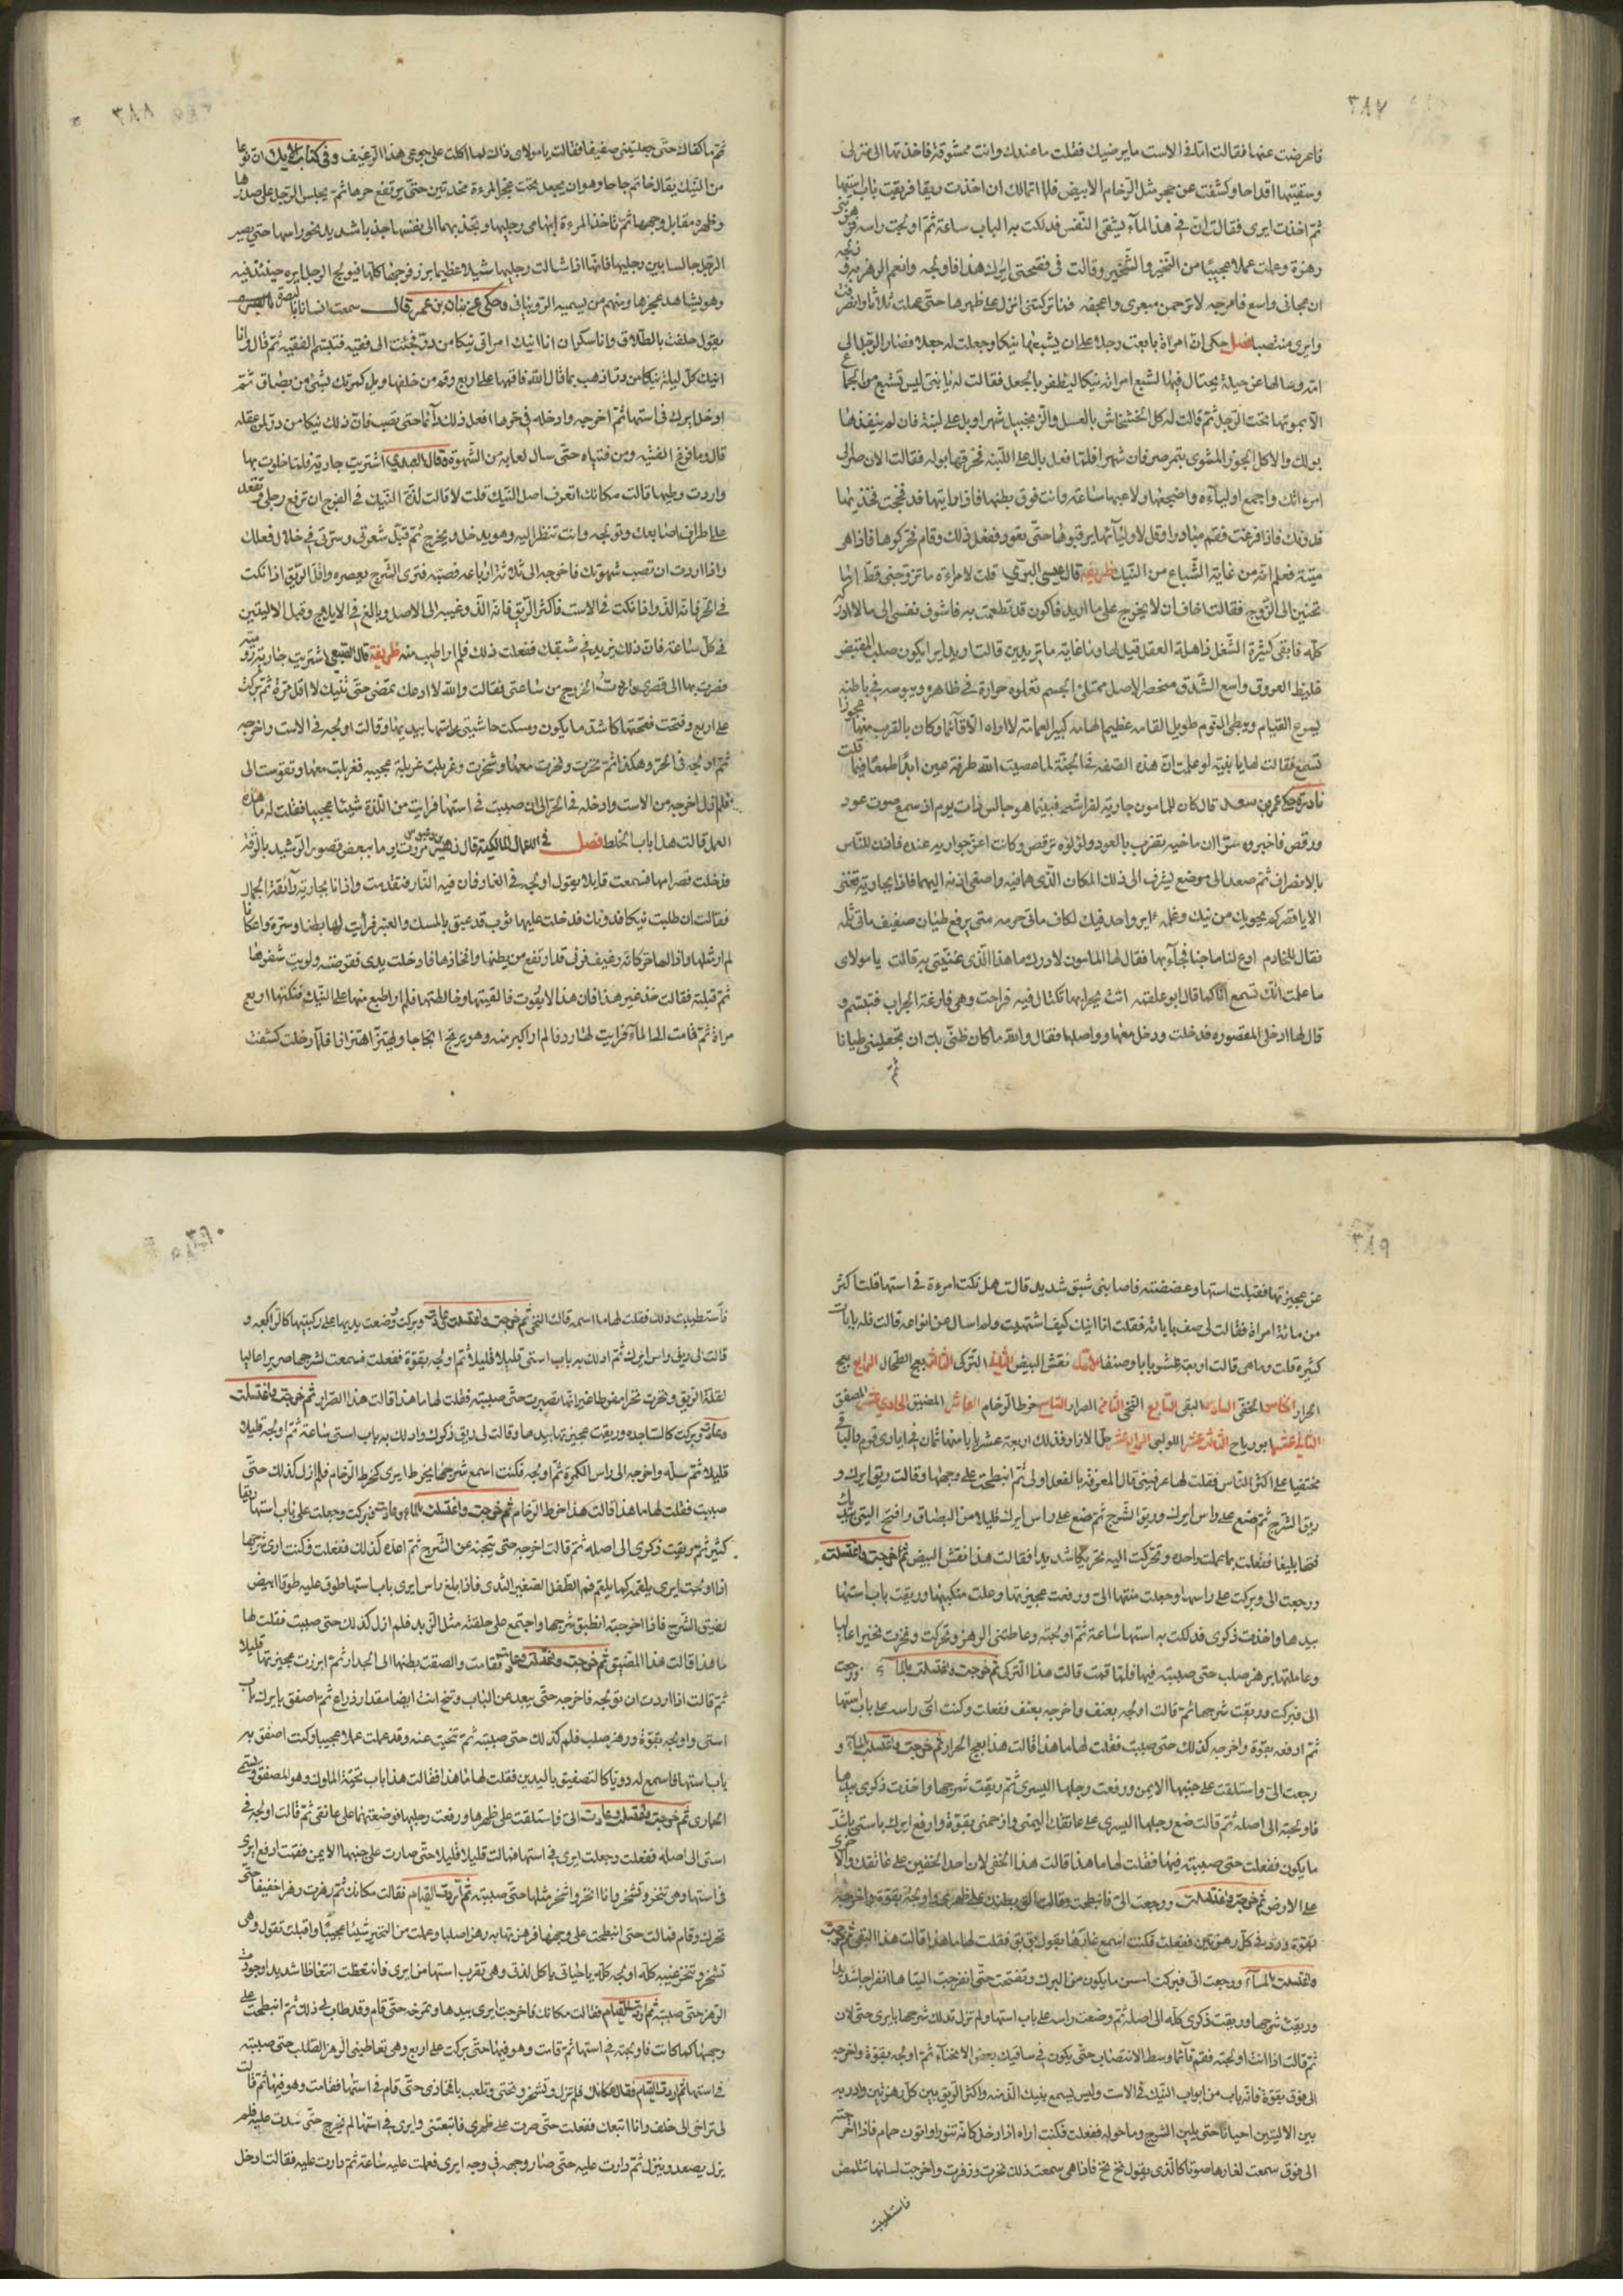 ٣٨٧
فاعرضت عنها فقالت اما في الاست ما يرضيك فقلت ما عندك وانت ممشوقة فاخذتها الى منزلي
وسقيتها اقداحا وكشفت عن حجر مثل الرخام الابيض فلم اتمالك ان اخذت ريقا فريقت باب استها
ثم اخذت ايرى فقالت ان في هذا المآء يشقى النفس فدلكت به الباب ساعة ثم اولجت راسه
رهزة وعملت عملا عجيبا من النخير والشخير وقالت في فقحتى ايرك هذا فاولجه وانعم الرهز
ان مجانى واسع فاخرجه لا ترحمن مبعرى واعجفه فما تركتنى انزل على ظهرها حتى عملت ثلاثا وانصرفت
وايرى منتصبا فصل حكى ان امراة بايعت رجلا على ان يشبعها نيكا وجعلت له جعلا فصار الرجل الى
امه وسالها عن حيلة يحتال فيها لشبع امراته نيكا ليظفر بالجعل فقالت له يا بنى ليس تشبع من الجماع
الا بموتها تحت الرجل ثم قالت له كل الخشخاش بالعسل والزنجبيل شهرا وبل على لبنة فان لم ينقذها
بولك والا كل الجوز المشوى بتمر صرفان شهرا فلما فعل بال على اللبنة فخرقها بوله فقالت الان صلى
امرءتك واجمع اولياءه واضجعها ولاعبها ساعة وانت فوق بطنها فاذا رايتها قد فحجت فخذيها
فدونك فاذا فرغت فقم مبادرا وقل لاوليآئها يرقبوها حتى تعود ففعل ذلك وقام فحركوها فاذا هى
ميتة فعلم انه من غاية الشباع من النيك ظريفة قال عيسى قلت لامراءة ما تزوجنى قط اما
تحنين الى الزوج فقالت اخاف ان لا يخرج على ما اريد فاكون قد تطعمت به فاشوف نفسى الى ما لا ادرك
كله فابقى كثيرة الشغل ذاهلة العقل قيل لها وما غاية ما تريدين قالت اريد ايرا يكون صلب المقبض
غليظ العروق واسع الشدق منخصر الاصل ممتلئ الجسم تعلوه حرارة في ظاهره ويبوسة في باطنه
يسرع القيام ويبطى النوم طويل القامة عظيم الهامة كبير العمامة لا اراه الا قائما وكان بالقرب منها عجوزا
تسمع فقالت لها يا بنية لو علمت ان هذه الصفة في الجنة لما عصيت الله طرفة عين ابدا طمعا فيما قلت
نادرة حكى عمر بن سعد قال كان للمامون جارية لفراشه فبينما هو جالس ذات يوم اذ سمع صوت عود
ورقص فاخبروه ان ماخيه بضرب بالعود ولؤلؤه ترقص وكانت اعز جواريه عنده فاذن للناس
بالانصراف ثم صعد الى موضع يشرف الى ذلك المكان الذى هما فيه واصغى اذنه اليهما فاذا بجارية تغنى
الا يا قصر كم يحويك من نيك وغلمه ءاير واحد فيك لكاف ما تى حرمه متى يرقع طيان صفيف ما تى ثلمه
فقال للخادم ادع لنا ماجنا فجآء بها فقال لها المامون لا درك ما هذا الذى غنيتى به قالت يا مولاى
ما علمت انك تسمع اناكما قال ابو علقمة اتت بجرابها تكتال فيه فراحت وهى فارغة الجراب فتبسم و
قال لها ادخلى المقصوره فدخلت ودخل معها وواصلها فقال والله ما كان ظنى بك ان تجعلينى طيانا
ثم
٣٨٨
ثم ما كفاك حتى جعلتينى صفيفا فقالت يا مولاى ذاك لما اكلت على جوعى هذا الرغيف وفى كتاب الايك ان نوعا
من النيك يقال خاتم جاجا وهو ان يجعل تحت عجز المرءة مخدتين حتى يرتفع حرها ثم يجلس الرجل على صدرها
وظهره مقابل وجهها ثم تاخذ المرءة ابهامى رجليها وتجذبهما الى نفسها جذبا شديدا نحو راسها حتى يصير
الرجل جالسا بين رجليها فانها اذا شالت رجليها شيلا عظيما برز فرجها كلها فيولج الرجل ايره حينئذ فيه
وهو يشاهد عجزها ومنهم من يسميه الزوبنانى وحكى عن بنان بن عمر قال سمعت انسانا بالبصرة
يقول حلفت بالطلاق وانا سكران انا انيك امراتى نيكا من دق فجئت الى فقيه فتبسم الفقيه ثم قال وانا
انيك كل ليلة نيكا من دق اذهب بما قال الله فاقمها على اربع وقم من خلفها وبل كمرتك بشئ من بصاق ثم
ادخل ايرك في استها ثم اخرجه وادخله في حرها افعل ذلك دآئما حتى تصب فان ذلك نيكا من دق لمن عقله
قال وما فرغ الفقيه ومن فتياه حتى سال لعابه من الشهوة وقال اشتريت جارية فلما خلوت بها
واردت وطيها قالت مكانك اتعرف اصل النيك قلت لا قالت لذة النيك في الفرج ان ترفع رجلى وتقعد
على اطراف اصابعك وتولجه وانت تنظر اليه وهو يدخل ويخرج ثم قبل شعرتى وسرتى في خلال فعلك
واذا اردت ان تصب شهوتك فاخرجه الى ثلاثة ارباعه فصبه فترى الشرج يعصره واقل الريق اذا نكت
في الحر فانه الذ واذا نكت في الاست فاكثر الريق فانه الذ وغيبه الى الاصل وبالغ في الايلاج وقبل الاليتين
في كل ساعة فان ذلك يزيد في شبقك ففعلت ذلك فلم ار اطيب منه ظريفة قال اشتريت جارية روميه
فصرت بها الى قصرى واردت الخروج من ساعتى فقالت والله لا ادعك تمضى حتى تنيك لا اقل مرة ثم بركت
على اربع وفتحت فقحتها كاشد ما يكون ومسكت حاشيتى استها بيديها وقالت اولجه في الاست واخرجه
ثم اولجه في الحر وهكذا ثم نخرت ونخرت معها وشخرت وغربلت غربلة عجيبه فغربلت معها وتقوست الى
فلم ازل اخرجه من الاست وادخله في الحر الى ان صببت في استها فرايت من اللذة شيئا عجيبا فقلت له ما هذه
العمل قالت هذا باب الخلط فصل في الاعمال المالكية قال مررت يوما ببعض قصور الرشيد بالرقة
فدخلت قصرا منها فسمعت قايلا يقول اولجه في الغار فان فيه النار فتقدمت واذا انا بجارية رآئقة الجمال
فقالت ان طلبت نيكا فدونك فدخلت عليها ثوب قد عبق بالمسك والعنبر فرايت لها بطنا وسرة واعكانا
لم ار مثلها واذا لها حر كانه رغيف فرنى قد ارتفع من بطنها وافخاذها فادخلت يدى فقرصته ولويت شفرها
ثم قبلته فقالت خذ غير هذا فان هذا لا يفوت فالقيتها وخالطتها فلم ار اطبع منها على النيك فنكتها اربع
مراة ثم قامت الى المآء فرايت لها ردفا لم ار اكبر منه وهو يرتج ارتجاجا ويهتز اهتزازا فلما دخلت كشفت
٣٨٩
عن عجيزتها فقبلت استها وعضضته فاصابنى شبق شديد قالت هل نكت امرءة في استها قلت اكثر
من مائة امراة فقالت لى صف بابا بابا فقلت انا انيك كيف اشتهيت ولم اسال عن انواعه قالت فله بابات
كثيرة قلت وما هى قالت اربعة عشر بابا وصنفا الاول نقش البيض الثانى التركى الثالث بعج الطحال الرابع بعج
الحرار الخامس الخفى السادس البقى السابع النخى الثامن الصرار التاسع خرط الرخام العاشر المضيق الحادى عشر المصفق
الثانى عشر ابو رياح الثالث عشر اللولبى الرابع عشر حل الازار فذلك اربعة عشر بابا منها ثمان في ايدى قوم والباقى
مختفيا على اكثر الناس فقلت لها عرفينى قال المعرفة بالفعل اولى ثم انبطحت على وجهها وقالت ريق ايرك و
ريق الشرج ثم ضع على راس ايرك وريق الشرج ثم ضع على راس ايرك قليلا من البصاق وافتح اليتى بيديك
فتحا بليغا ففعلت بما عملت واحده وتحركت اليه تحريكا شديدا فقالت هذا نقش البيض ثم خرجت واغتسلت
ورجعت الى وبركت على راسها وجعلت منتهيا الى ورفعت عجيزتها وعلت منكبيها وريقت باب استها
بيدها واخذت ذكرى فدلكت به استها ساعة ثم اولجته وعاطتنى الرهز وتحركت ونخرت نخيرا عاليا
وعاملتها برهز صلب حتى صببته فيها فلما قمت قالت هذا التركى ثم خرجت واغتسلت بالمآء ورجعت
الى فبركت وريقت شرجها ثم قالت اولجه بعنف واخرجه بعنف ففعلت وكنت اجى راسه على باب استها
ثم ادفعه بقوة واخرجه كذلك حتى صببت فقلت لها ما هذا قالت هذا بعج الحرار ثم خرجت واغتسلت بالمآء و
رجعت الى واستلقت على جنبها الايمن ورفعت رجلها اليسرى ثم ريقت شرجها واخذت ذكرى بيدها
فاولجته الى اصله ثم قالت ضع رجلها اليسرى على عاتقك اليمنى وازحمنى بقوة وارفع ايرك باستى باشد
ما يكون ففعلت حتى صببته فيها فقلت لها ما هذا قالت هذا الخفى لان احد الخفين على عاتقك والاخرى
على الارض ثم خرجت واغتسلت ورجعت الى فانبطحت وقالت الق بطنك على ظهرى واولجه بقوة واخرجه
بقوة وزد في كل رهزتين ففعلت فكنت اسمع غارها يقول بق بق فقلت لها ما هذا قالت هذا البقى ثم خرجت
واغتسلت بالمآء ورجعت الى فبركت احسن ما يكون من البرك وتفتحت حتى انفرجت اليتاها انفراجا شديدا
وريقت شرجها وريقت ذكرى كله الى اصله ثم وضعت راسه على باب استها ولم تزل تدلك شرجها بايرى حتى لان
ثم قالت اذا انت اولجته فقم قآئما وسط الانتصاب حتى يكون في ساقيك بعض الانحنآء ثم اولجه بقوة واخرجه
الى فوق بقوة فانه باب من ابواب النيك في الاست وليس يسمع بنيك الذ منه واكثر الريق بين كل رهزتين وادر به
بين الاليتين احيانا حتى يلين الشرج وما حوله ففعلت فكنت اراه اذا دخل كانه تنور او اتون حمام فاذا اخرجته
الى فوق سمعت لغارها صوتا كالذى يقول نخ نخ فاذا هى سمعت ذلك نخرت وزفرت واخرجت لسانها تتلمض
فاستطيبت
٣٩٠
فاستطيبت ذلك فقلت لها ما اسمه قالت النخى ثم خرجت واغتسلت وعادت وبركت ووضعت يديها على ركبتيها كالراكعه و
قالت لى ريق راس ايرك ثم ادلك به باب استى قليلا قليلا ثم اولجه بقوة ففعلت فسمعت لشرجها صريرا عاليا
لقلة الريق ونخرت نخرا مفرطا غير انها صبرت حتى صببته فقلت لها ما هذا قالت هذا الصرار ثم خرجت واغتسلت
وعادت وبركت كالساجده وريقت عجيزتها بيدها وقالت لى ريق ذكرك وادلك به باب استى ساعة ثم اولجه قليلا
قليلا ثم سله واخرجه الى راس الكمرة ثم اولجه فكنت اسمع شرجها يخرط ايرى كخرط الرخام فلم ازل كذلك حتى
صببت فقلت لها ما هذا قالت هذا خرط الرخام ثم خرجت واغتسلت بالماء وعادت فبركت وجعلت على باب استها ريقا
كثيرا ثم ريقت ذكرى الى اصله ثم قالت اخرجه حتى ينجنه عن الشرج ثم اعده كذلك ففعلت فكنت ارى شرجها
اذا اولجت ايرى يلتقمه كما يلتقم فم الطفل الصغير الثدى فاذا بلغ راس ايرى باب استها طوق عليه طوقا ابيض
لضيق الشرج فاذا اخرجته انطبق شرجها واجتمع على حلقته مثل الزبد فلم ازل كذلك حتى صببت فقلت لها
ما هذا قالت هذا المضيق ثم خرجت واغتسلت وعادت فقامت والصقت بطنها الى الجدار ثم ابرزت عجيزتها قليلا
ثم قالت اذا اردت ان تولجه فاخرجه حتى يبعد عن الباب وتنح انت ايضا مقدار ذراع ثم صفق بايرك باب
استى واولجه بقوة ورهز صلب فلم كذلك حتى صببته ثم تنحيت عنه وقد عملت عملا عجيبا وكنت اصفق به
باب استها فاسمع له دويا كالتصفيق باليدين فقلت لها ما هذا فقالت هذا باب تحية الملوك وهو المصفق ويسمى
الحمارى ثم خرجت واغتسلت وعادت الى فاستلقت على ظهرها ورفعت رجليها فوضعتهما على عاتقى ثم قالت اولجه في
استى الى اصله ففعلت وجعلت ايرى في استها فمالت قليلا قليلا حتى صارت على جنبها الايمن فقمت ارفع ايرى
في استها وهى تنخر وتشخر وانا انخر واشخر مثلها حتى صببته ثم اردت القيام فقالت مكانك ثم رهزت رهزا خفيفا حتى
تحرك وقام فمالت حتى انبطحت على وجهها فرهزتها به رهزا صلبا وعملت من النخير شيئا عجيبا واقبلت تقول وهى
تشخر وتنخر غيبه كله اولجه كله يا حياتى يا كل لذتى وهى تقرب استها من ايرى فانتعظت انتعاظا شديدا وجودت
الرهز حتى صببته ثم اردت القيام فقالت مكانك فاخرجت ايرى بيدها وتمرخه حتى قام وقد طاب لى ذلك ثم انبطحت على
وجهها كما كانت فاولجته في استها ثم قامت وهو فيها حتى بركت على اربع وهى تعاطينى الرهز الصلب حتى صببته
في استها ثم اردت القيام فقالت مكانك فلم تزل وتشخر وتغنى وتلعب بافخاذى حتى قام في استها فقامت وهو فيها ثم قالت
لى تراخى الى خلف وانا اتبعك ففعلت حتى صرت على ظهرى فاتبعتنى وايرى في استها لم يخرج حتى سدت عليه فلم
يزل يصعد وينزل ثم دارت عليه حتى صار وجهه في وجه ايرى فعملت عليه ساعة ثم دارت عليه فقالت ادخل